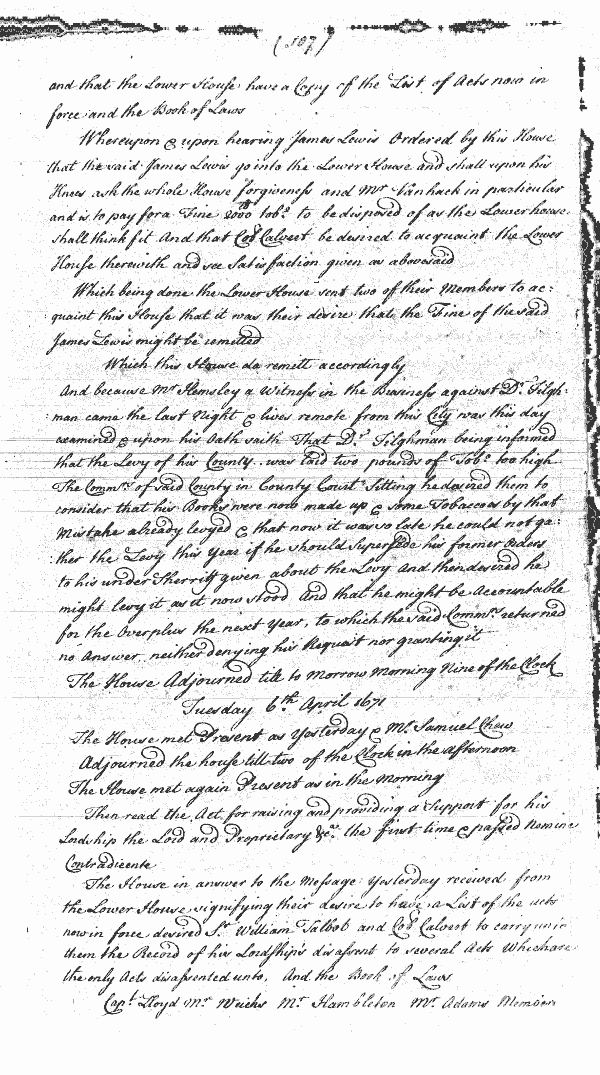 (107)
and that the Lower House have a Copy of the List of Acts now in
force and the Book of Laws
Whereupon & upon hearing James Lewis Ordered by this House
that the said James Lewis go into the Lower House and shall upon his
Knees ask the whole House forgiveness and Mr Vanhack in particular
and is to pay for a Fine 2000lb tobo to be disposed of as the Lower house
shall think fit And that Col Calvert be desired to acquaint the Lower
House therewith and see Satisfaction given as abovesaid
Which being done the Lower House sent two of their Members to ac:
quaint this House that it was their desire that the Fine of the said
James Lewis might be remitted
Which this House do remitt accordingly
And because Mr Hemsley a Witness in the Business against Dr Tilgh:
man came the last Night & lives remote from this City was this day
examined & upon his Oath saith That Dr Tilghman being informed
that the Levy of his County was laid two pounds of Tobo too high
The Commrs of said County in County Court Sitting he desired them to
consider that his Books were now made up & some Tobaccoes by that
Mistake already levyed & that now it was so late he could not ga:
:ther the Levy this Year if he should Supersede his former Orders
to his under Sherriff given about the Levy And then desired he
might levy it as it now stood And that he might be Accountable
for the Overplus the next Year, to which the said Commrs returned
no Answer, neither denying his Request nor granting it
The House Adjourned till to Morrow Morning Nine of the Clock
Tuesday 6th April 1671
The House met Present as Yesterday & Mr Samuel Chew
Adjourned the house till two of the Clock in the afternoon
The House met again Present as in the Morning
Then read the Act for raising and providing a Support for his
Lordship the Lord and Proprietary &ca the first time & passed Nemine
Contradicente
The House in answer to the Message Yesterday received from
the Lower House signifying their desire to have a List of the acts
now in force desired Sr William Talbot and Col Calvert to carry unto
them the Record of his Lordship's disassent to several Acts Which are
the only Acts disassented unto, And the Book of Laws
Capt Lloyd Mr Weeks Mr Hambleton Mr Adams Members